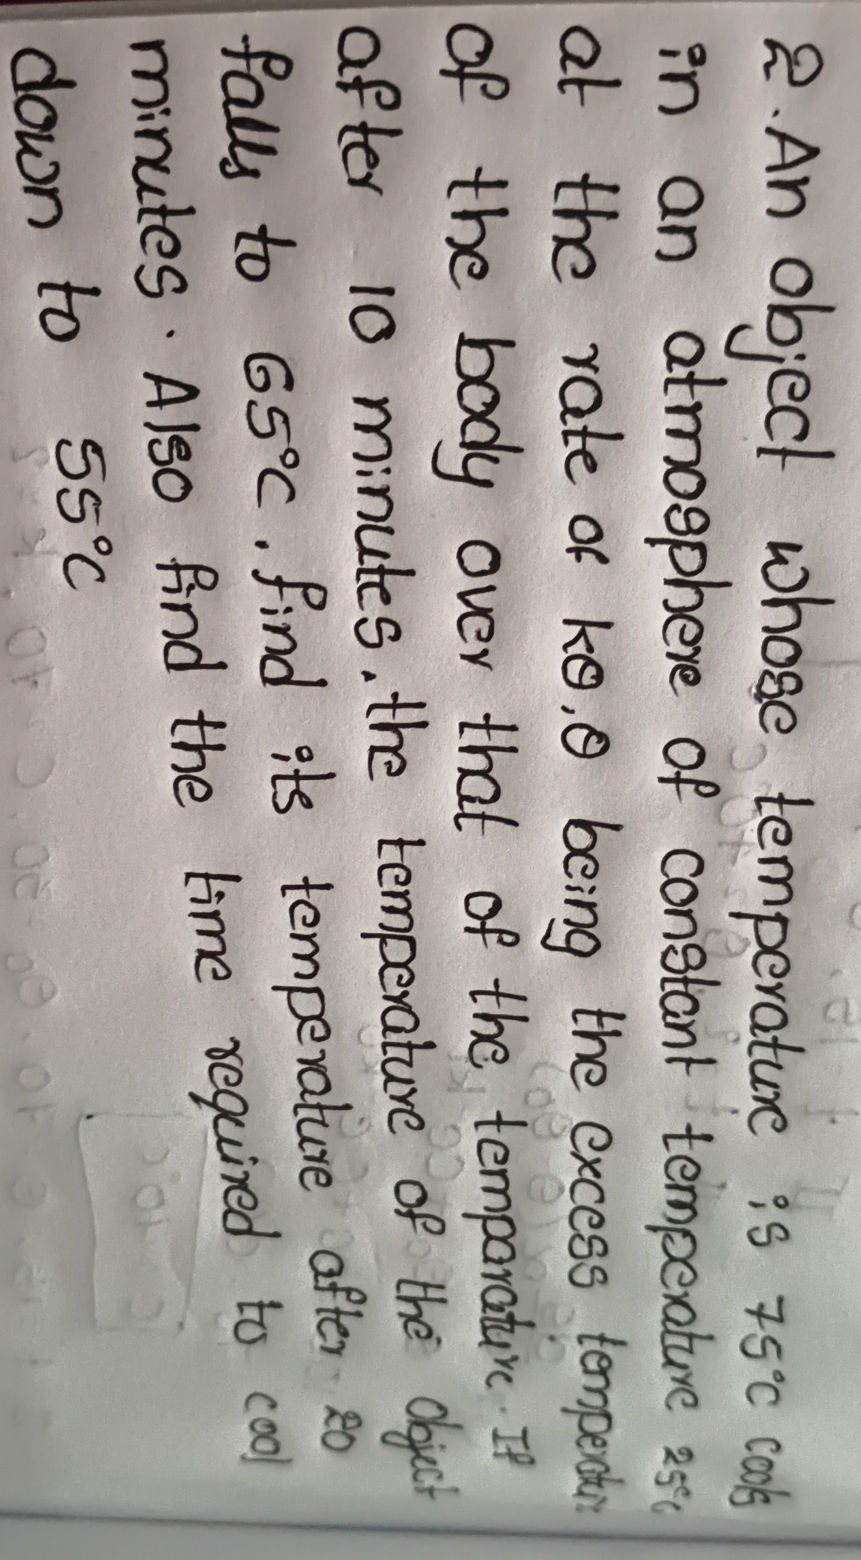 2. An object whose temperature is 75°C cools
in an atmosphere of constant temperature 25°c
at the rate of kθ, θ being the excess temperature
of the body over that of the temparature. If
after 10 minutes, the temperature of the object
falls to 65°C, find its temperature after 20
minutes. Also find the time required to cool
down to 55°C